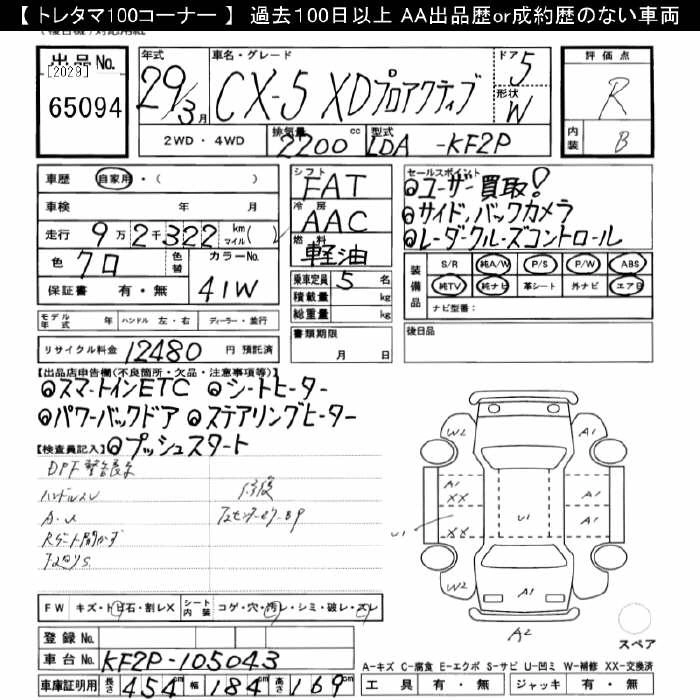 【 トレタマ100コーナー 】 過去100日以上 AA出品歴or成約歴のない車両
出品No. [2029] 65094
年式 29/3月
車名・グレード CX-5 XDプロアクティブ
ドア 5
形状 W
2WD・4WD 排気量 2200cc 型式 LDA-KF2P
評価点 R
内装 B
車歴 自家用・( )
車検 年 月
走行 9万2千322 km マイル( )
色 クロ 色替 カラーNo. 41W
保証書 有・無
モデル年式 年 ハンドル 左・右 ディーラー・並行
リサイクル料金 12480 円 預託済
シフト FAT
冷房 AAC
燃料 軽油
乗車定員 5 名
積載量 kg
総重量 kg
書類期限
月 日
セールスポイント
◎ユーザー買取!
◎サイド、バックカメラ
◎レーダークルーズコントロール
装備品 S/R 純A/W P/S P/W ABS
純TV 純ナビ 革シート 外ナビ エアB
ナビ型番:
後日品
【出品店申告欄(不良箇所・欠品・注意事項等)】
◎スマートインETC ◎シートヒーター
◎パワーバックドア ◎ステアリングヒーター
【検査員記入】◎プッシュスタート
DPF
修復
W2 A1
A1 XX A1
U1 XX U1 A1
W2 A1 A1
A2
スペア
FW キズ・トビ石・割レX シート内装 コゲ・穴・汚レ・シミ・破レ・スレ
登録No.
車台No. KF2P-105043
車庫証明用 長さ 454cm 幅 184cm 高さ 169cm
A-キズ C-腐食 E-エクボ S-サビ U-凹ミ W-補修 XX-交換済
工具 有・無 ジャッキ 有・無